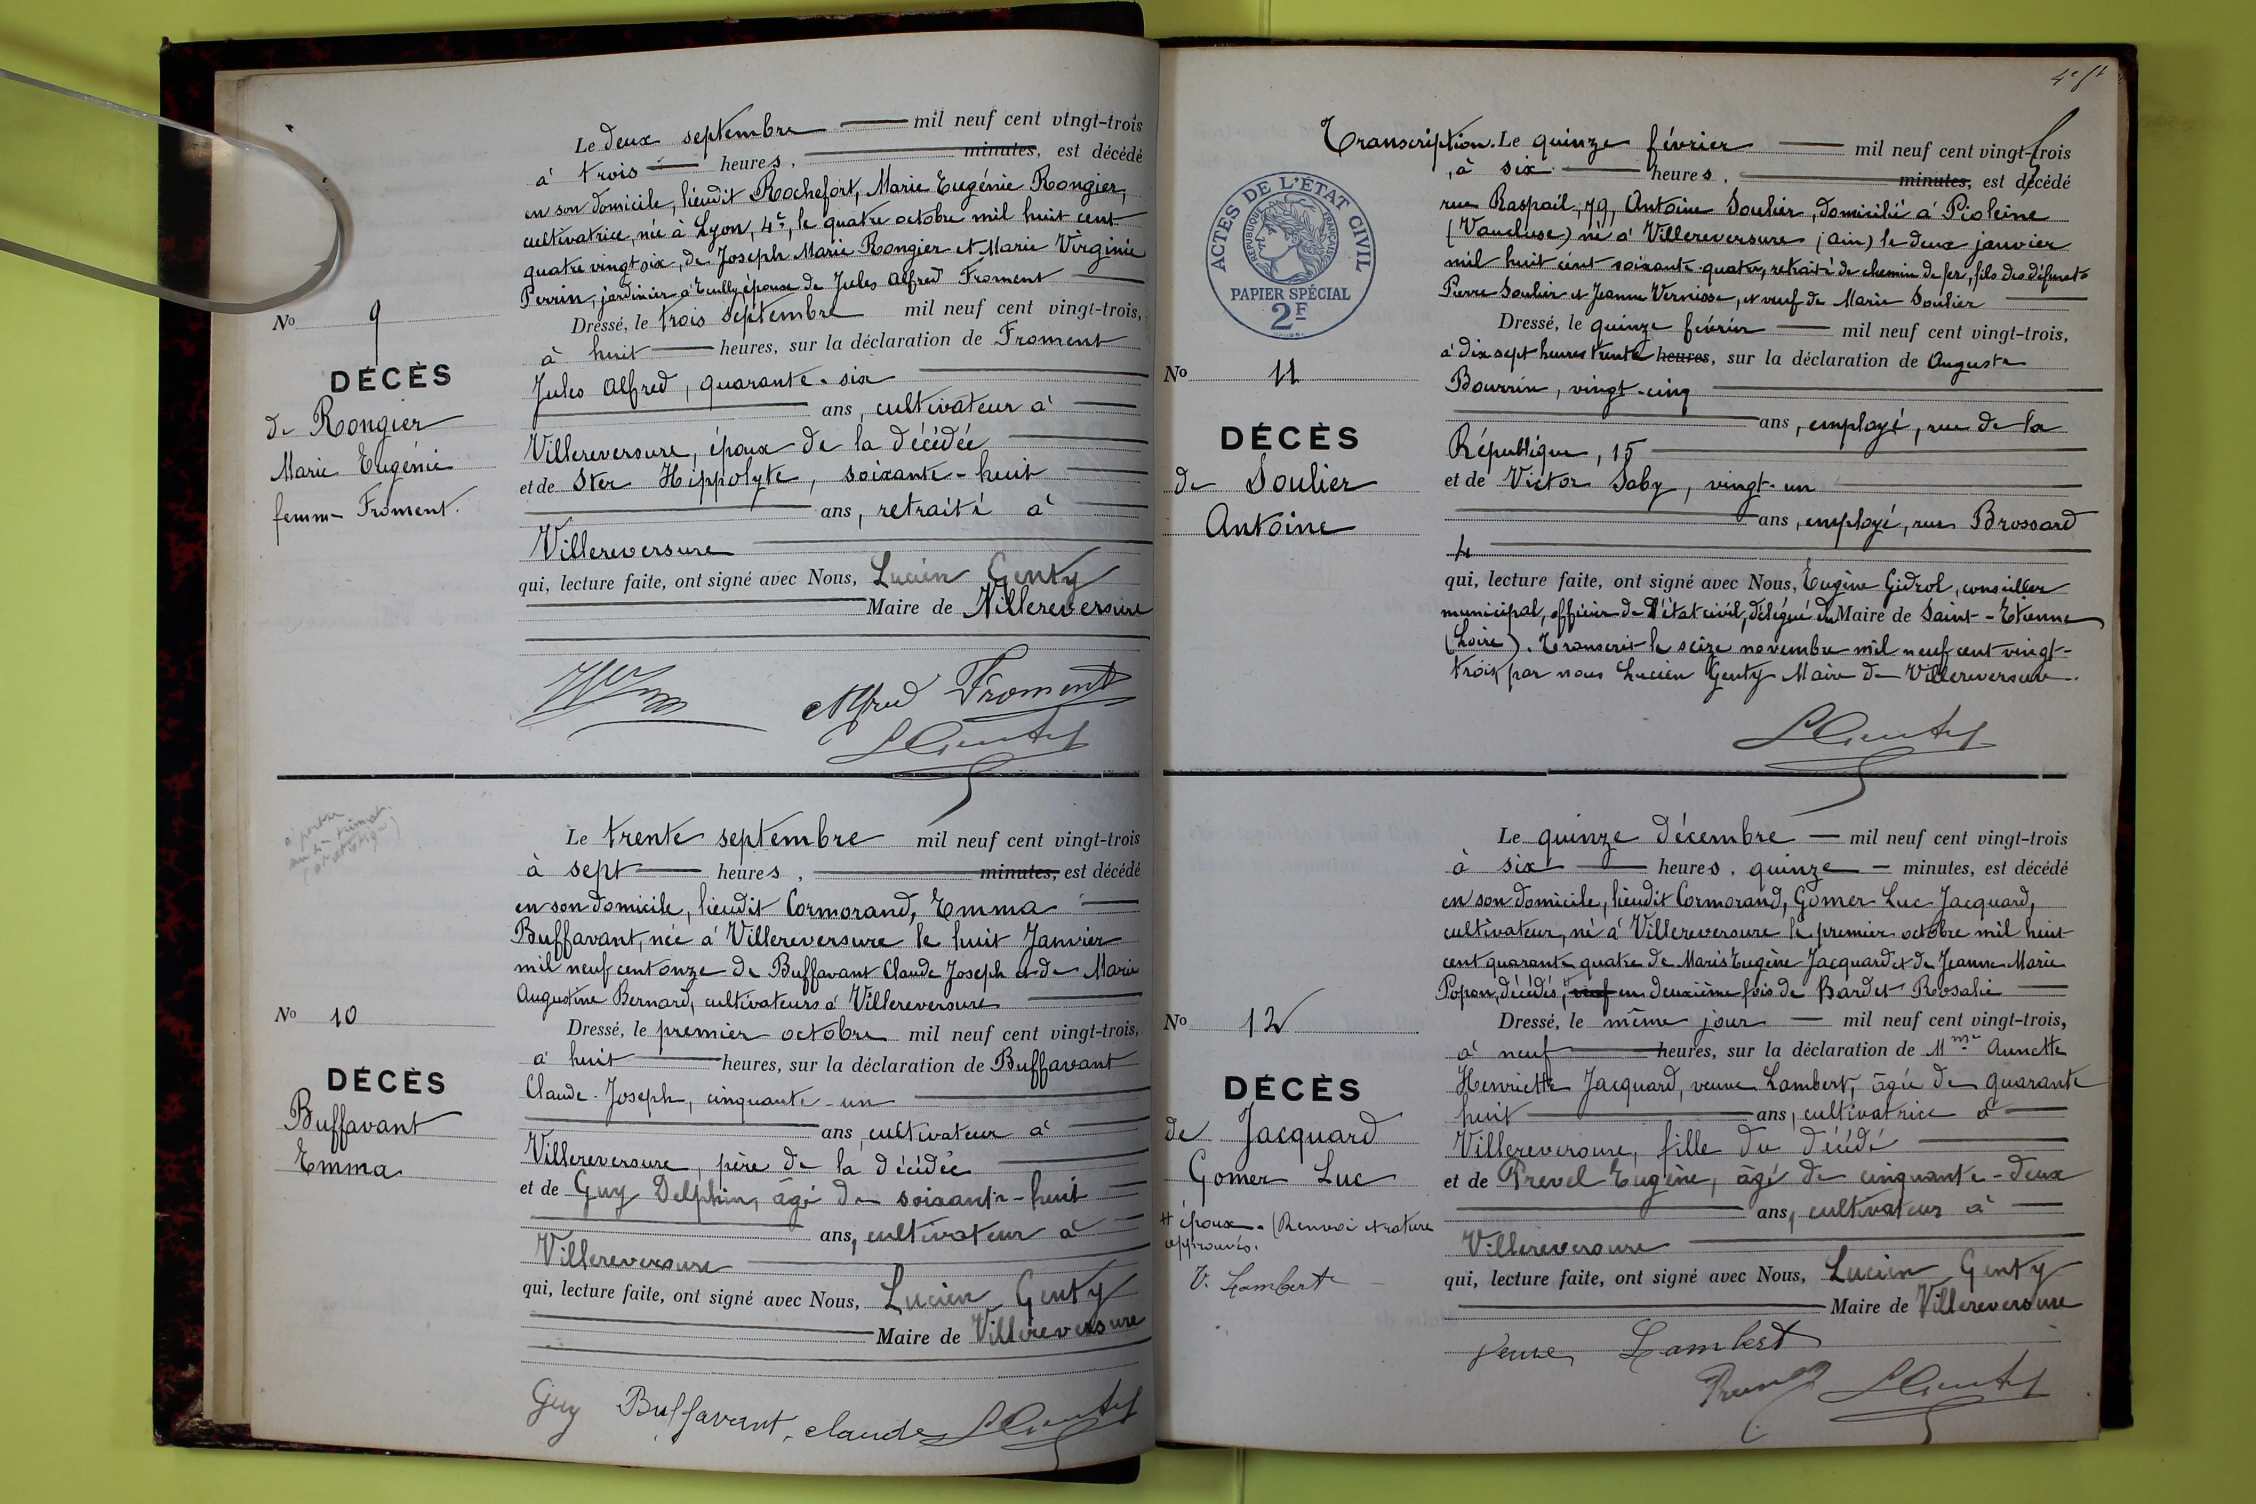 Le deux septembre mil neuf cent vingt-trois
à trois heures, minutes, est décédé
en son domicile, lieudit Rochefort, Marie Eugénie Rongier,
cultivatrice, née à Lyon, 4e, le quatre octobre mil huit cent
quatre vingt six, de Joseph Marie Rongier et Marie Virginie
Perrin, jardinier à Ecully épouse de Jules Alfred Froment
No 9
DÉCÈS
de Rongier
Marie Eugénie
femme Froment.
Dressé, le trois septembre mil neuf cent vingt-trois,
à huit heures, sur la déclaration de Froment
Jules Alfred, quarante-six
ans, cultivateur à
Villereversure, époux de la décédée
et de Ster Hippolyte, soixante-huit
ans, retraité à
Villereversure
qui, lecture faite, ont signé avec Nous, Lucien Genty
Maire de Villereversure
Alfred Froment
LGenty
Le trente septembre mil neuf cent vingt-trois
à sept heures, minutes, est décédé
en son domicile, lieudit Cormorand, Emma
Buffavant, née à Villereversure le huit Janvier
mil neuf cent onze de Buffavant Claude Joseph et de Marie
Augustine Bernard, cultivateurs à Villereversure
No 10
DÉCÈS
Buffavant
Emma
Dressé, le premier octobre mil neuf cent vingt-trois,
à huit heures, sur la déclaration de Buffavant
Claude-Joseph, cinquante-un
ans, cultivateur à
Villereversure, père de la décédée
et de Guy Delphin, âgé de soixante-huit
ans, cultivateur à
Villereversure
qui, lecture faite, ont signé avec Nous, Lucien Genty
Maire de Villereversure
Guy Buffavant, claude LGenty
Transcription. Le quinze février mil neuf cent vingt-trois
, à six heures, minutes, est décédé
rue Raspail, 79, Antoine Soulier, domicilié à Piolenc
(Vaucluse) né à Villereversure (Ain) le deux janvier
mil huit cent soixante-quatre, retraité de chemin de fer, fils des défunts
Pierre Soulier et Jeanne Vernisse, et veuf de Marie Soulier
ACTES DE L'ÉTAT CIVIL
RÉPUBLIQUE FRANÇAISE
PAPIER SPÉCIAL
2F
No 11
DÉCÈS
de Soulier
Antoine
Dressé, le quinze février mil neuf cent vingt-trois,
à dix sept heures trente heures, sur la déclaration de Auguste
Bourrin, vingt-cinq
ans, employé, rue de la
République, 15
et de Victor Saby, vingt-un
ans, employé, rue Brossard
4
qui, lecture faite, ont signé avec Nous, Eugène Gidrol, conseiller
municipal, officier de l'état civil, délégué du Maire de Saint-Etienne
(Loire). Transcrit le seize novembre mil neuf cent vingt-
trois, par nous Lucien Genty Maire de Villereversure.
LGenty
Le quinze décembre mil neuf cent vingt-trois
à six heures, quinze minutes, est décédé
en son domicile, lieudit Cormorand, Gomer Luc Jacquard,
cultivateur, né à Villereversure le premier octobre mil huit
cent quarante quatre de Marie Eugène Jacquard et de Jeanne Marie
Popon, décédés, veuf en deuxième fois de Bardet Rosalie
No 12
DÉCÈS
de Jacquard
Gomer Luc
# époux. (Renvoi et rature
approuvés.
V. Lambert
Dressé, le même jour mil neuf cent vingt-trois,
à neuf heures, sur la déclaration de Mme Annette
Henriette Jacquard, veuve Lambert, âgée de quarante
huit ans, cultivatrice à
Villereversure, fille du décédé
et de Prevel Eugène, âgé de cinquante-deux
ans, cultivateur à
Villereversure
qui, lecture faite, ont signé avec Nous, Lucien Genty
Maire de Villereversure
Veuve Lambert
LGenty